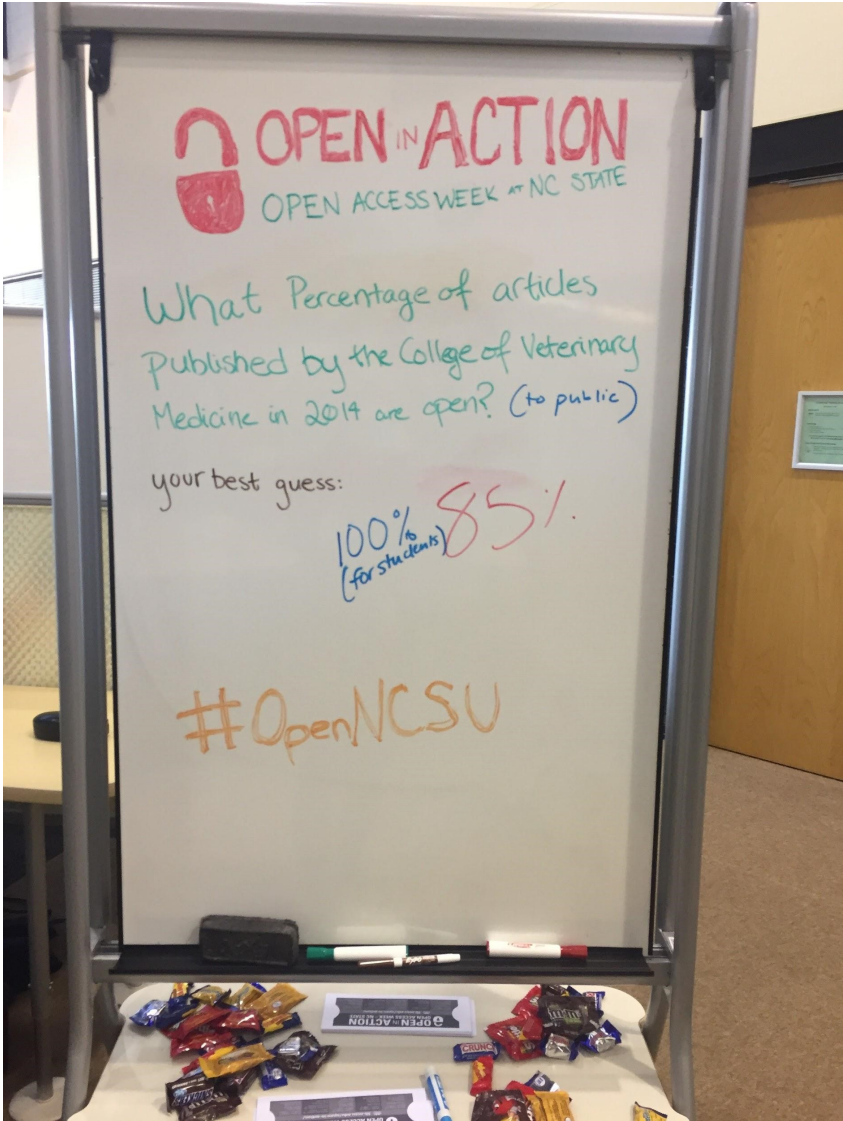 OPEN IN ACTION
OPEN ACCESS WEEK AT NC STATE
What Percentage of articles
published by the College of Veterinary
Medicine in 2014 are open? (to public)
your best guess:
100% 85%
(for students)
#OpenNCSU
OPEN IN ACTION
OPEN ACCESS WEEK · NC STATE
CRUNC
m&m's